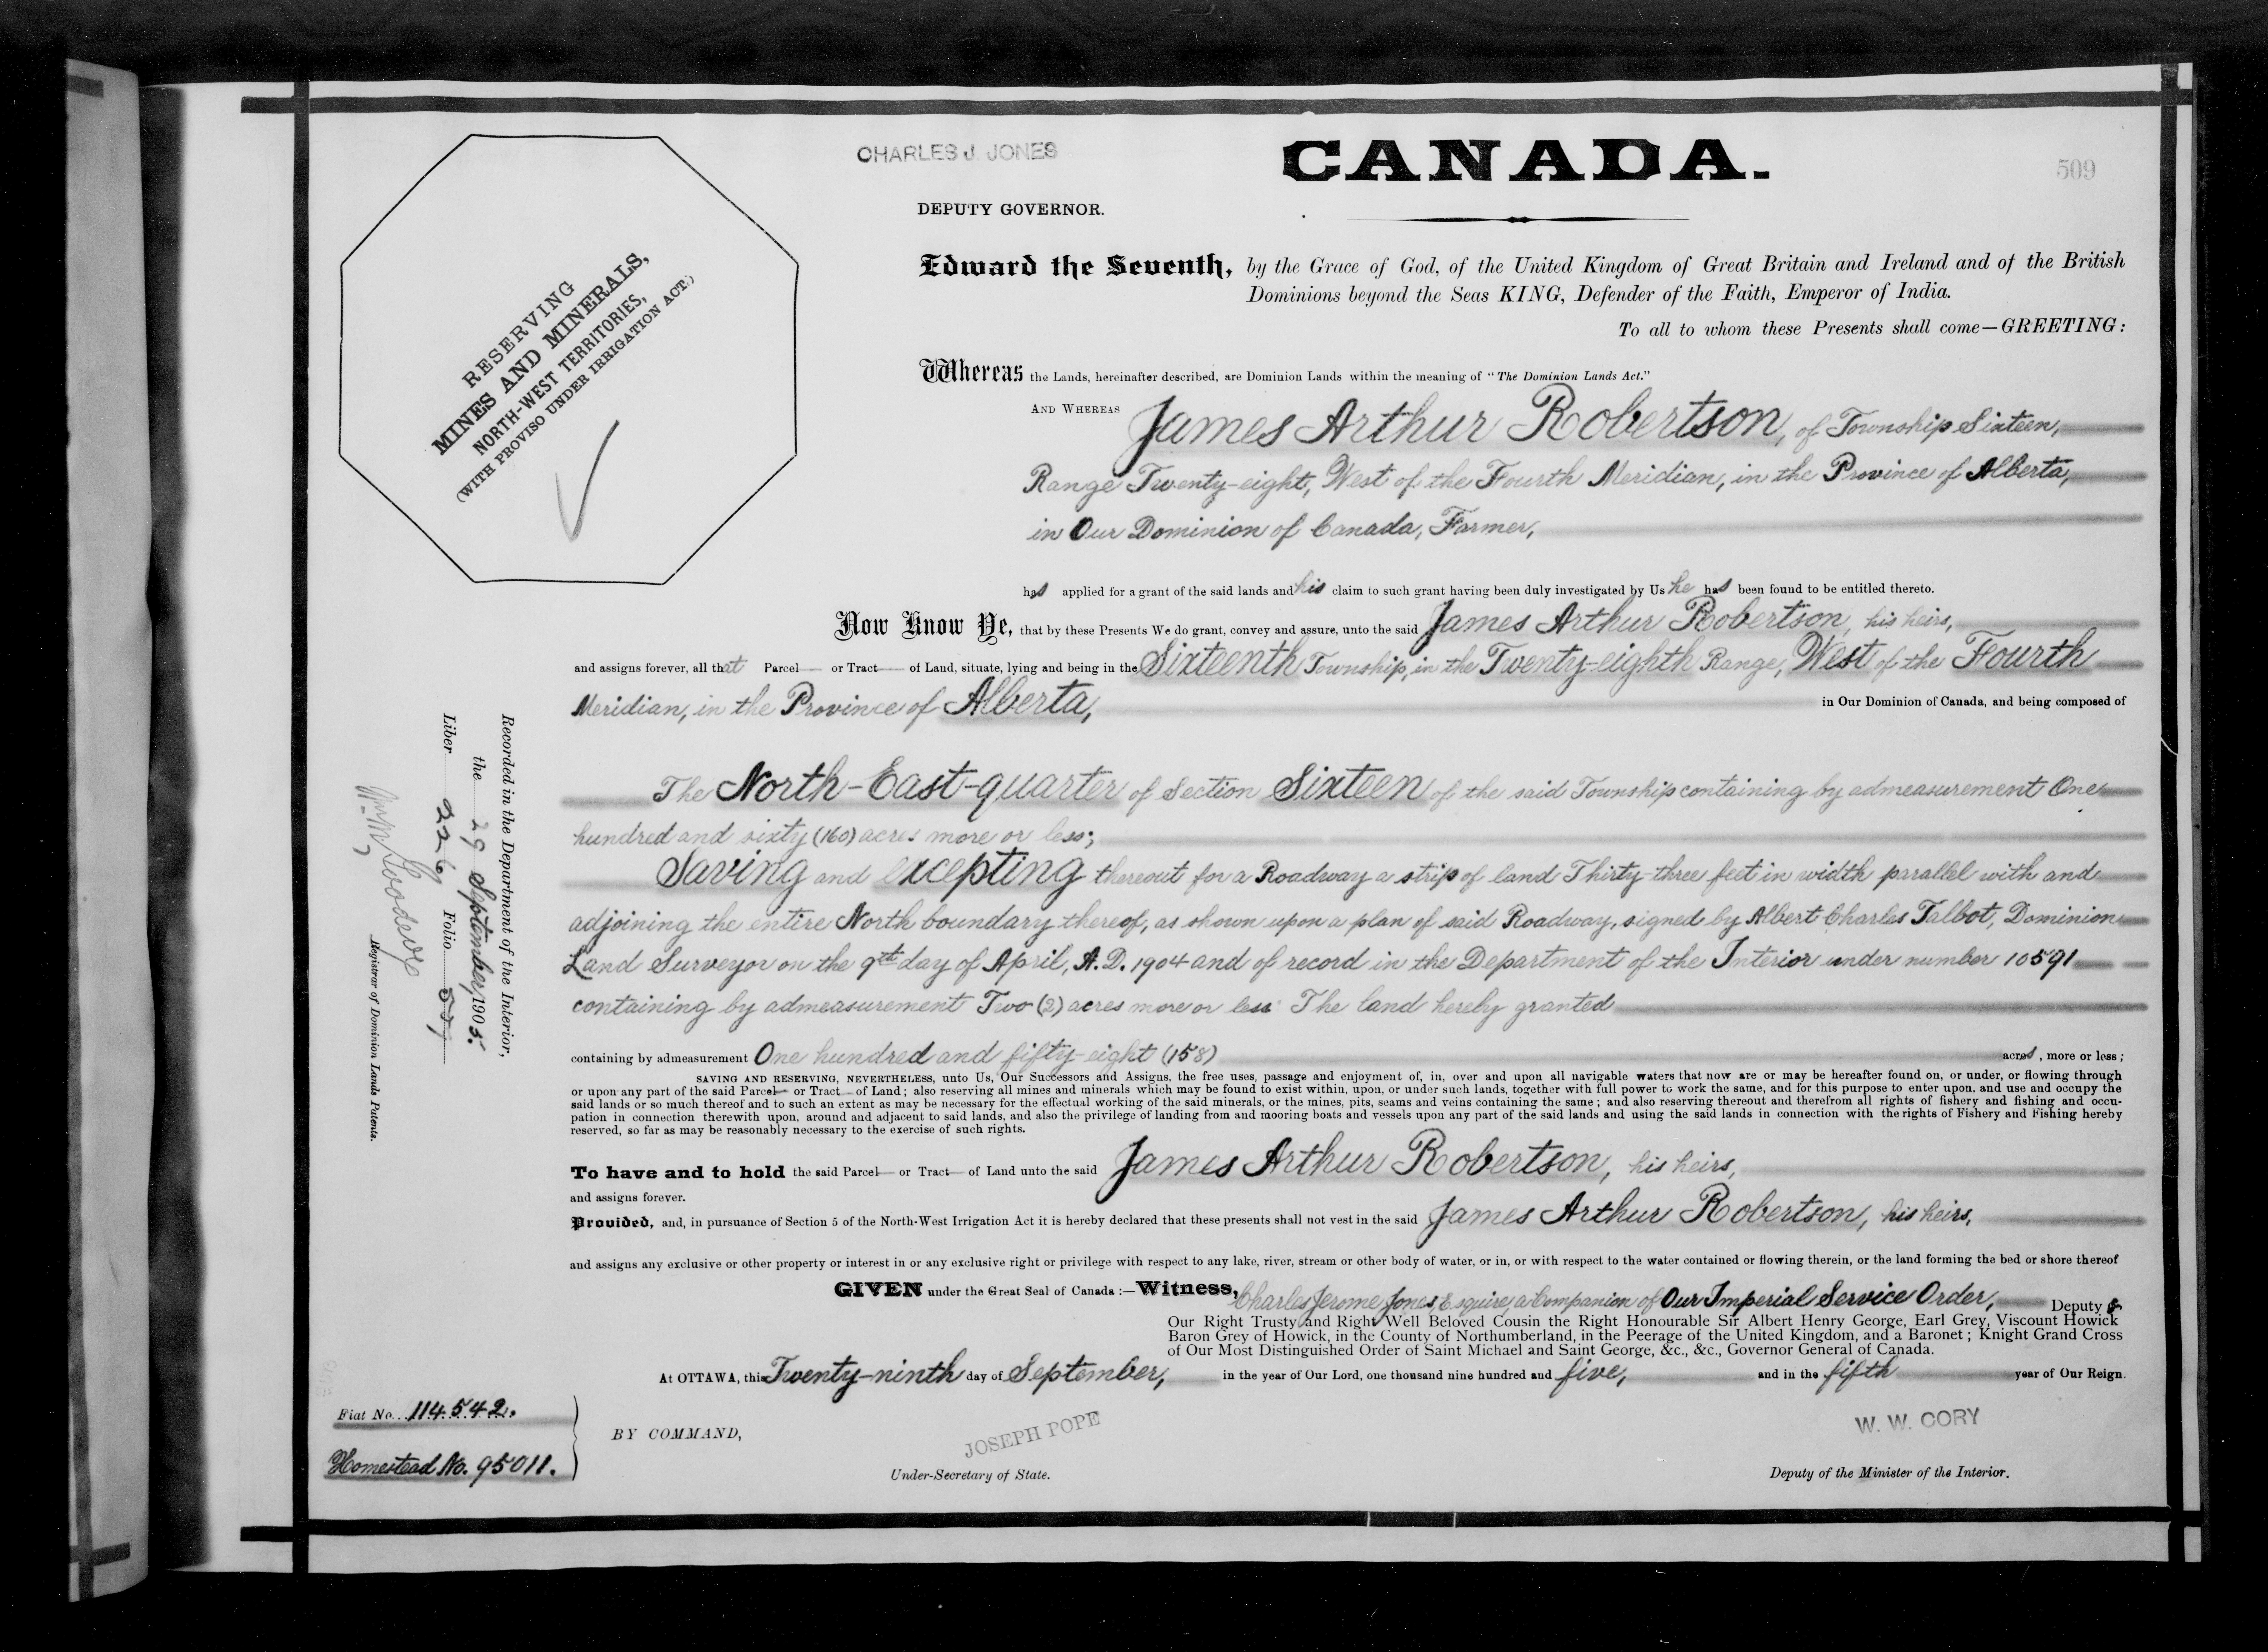 CHARLES J. JONES
CANADA.
509
DEPUTY GOVERNOR.
RESERVING
MINES AND MINERALS,
NORTH-WEST TERRITORIES,
(WITH PROVISO UNDER IRRIGATION ACT.)
Edward the Seventh, by the Grace of God, of the United Kingdom of Great Britain and Ireland and of the British
Dominions beyond the Seas KING, Defender of the Faith, Emperor of India.
To all to whom these Presents shall come—GREETING:
Whereas the Lands, hereinafter described, are Dominion Lands within the meaning of "The Dominion Lands Act."
AND WHEREAS James Arthur Robertson, of Township Sixteen,
Range Twenty-eight, West of the Fourth Meridian, in the Province of Alberta,
in Our Dominion of Canada, Farmer,
has applied for a grant of the said lands and his claim to such grant having been duly investigated by Us he has been found to be entitled thereto.
Now Know Ye, that by these Presents We do grant, convey and assure, unto the said James Arthur Robertson, his heirs,
and assigns forever, all that Parcel or Tract of Land, situate, lying and being in the Sixteenth Township, in the Twenty-eighth Range, West of the Fourth
Meridian, in the Province of Alberta, in Our Dominion of Canada, and being composed of
The North-East-quarter of Section Sixteen of the said Township containing by admeasurement One
hundred and sixty (160) acres more or less;
Saving and excepting thereout for a Roadway a strip of land Thirty-three feet in width parallel with and
adjoining the entire North boundary thereof, as shown upon a plan of said Roadway, signed by Albert Charles Talbot, Dominion
Land Surveyor on the 9th day of April, A.D. 1904 and of record in the Department of the Interior under number 10591
containing by admeasurement Two (2) acres more or less The land hereby granted
containing by admeasurement One hundred and fifty-eight (158) acres, more or less;
SAVING AND RESERVING, NEVERTHELESS, unto Us, Our Successors and Assigns, the free uses, passage and enjoyment of, in, over and upon all navigable waters that now are or may be hereafter found on, or under, or flowing through
or upon any part of the said Parcel or Tract of Land; also reserving all mines and minerals which may be found to exist within, upon, or under such lands, together with full power to work the same, and for this purpose to enter upon, and use and occupy the
said lands or so much thereof and to such an extent as may be necessary for the effectual working of the said minerals, or the mines, pits, seams and veins containing the same; and also reserving thereout and therefrom all rights of fishery and fishing and occu-
pation in connection therewith upon, around and adjacent to said lands, and also the privilege of landing from and mooring boats and vessels upon any part of the said lands and using the said lands in connection with the rights of Fishery and Fishing hereby
reserved, so far as may be reasonably necessary to the exercise of such rights.
To have and to hold the said Parcel or Tract of Land unto the said James Arthur Robertson, his heirs,
and assigns forever.
Provided, and, in pursuance of Section 5 of the North-West Irrigation Act it is hereby declared that these presents shall not vest in the said James Arthur Robertson, his heirs,
and assigns any exclusive or other property or interest in or any exclusive right or privilege with respect to any lake, river, stream or other body of water, or in, or with respect to the water contained or flowing therein, or the land forming the bed or shore thereof
GIVEN under the Great Seal of Canada:—Witness, Charles Jerome Jones, Esquire, a Companion of Our Imperial Service Order, Deputy of
Our Right Trusty and Right Well Beloved Cousin the Right Honourable Sir Albert Henry George, Earl Grey, Viscount Howick
Baron Grey of Howick, in the County of Northumberland, in the Peerage of the United Kingdom, and a Baronet; Knight Grand Cross
of Our Most Distinguished Order of Saint Michael and Saint George, &c., &c., Governor General of Canada.
At OTTAWA, this Twenty-ninth day of September, in the year of Our Lord, one thousand nine hundred and five, and in the fifth year of Our Reign.
Fiat No. 114542.
Homestead No. 95011.
BY COMMAND,
JOSEPH POPE
Under-Secretary of State.
W. W. CORY
Deputy of the Minister of the Interior.
Recorded in the Department of the Interior,
the 29 September, 1905.
Liber 226 Folio
Goodeve
Registrar of Dominion Lands Patents.